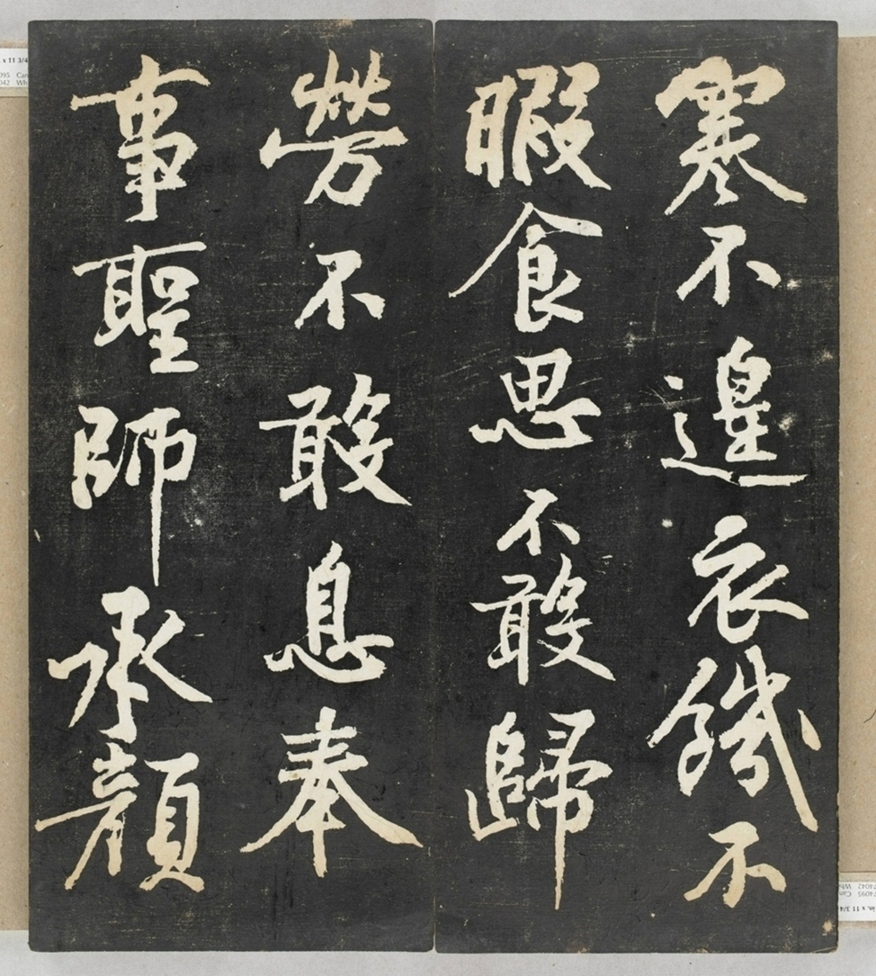 寒不遑衣饑不
暇食思不敢歸
勞不敢息奉
事聖師承顏